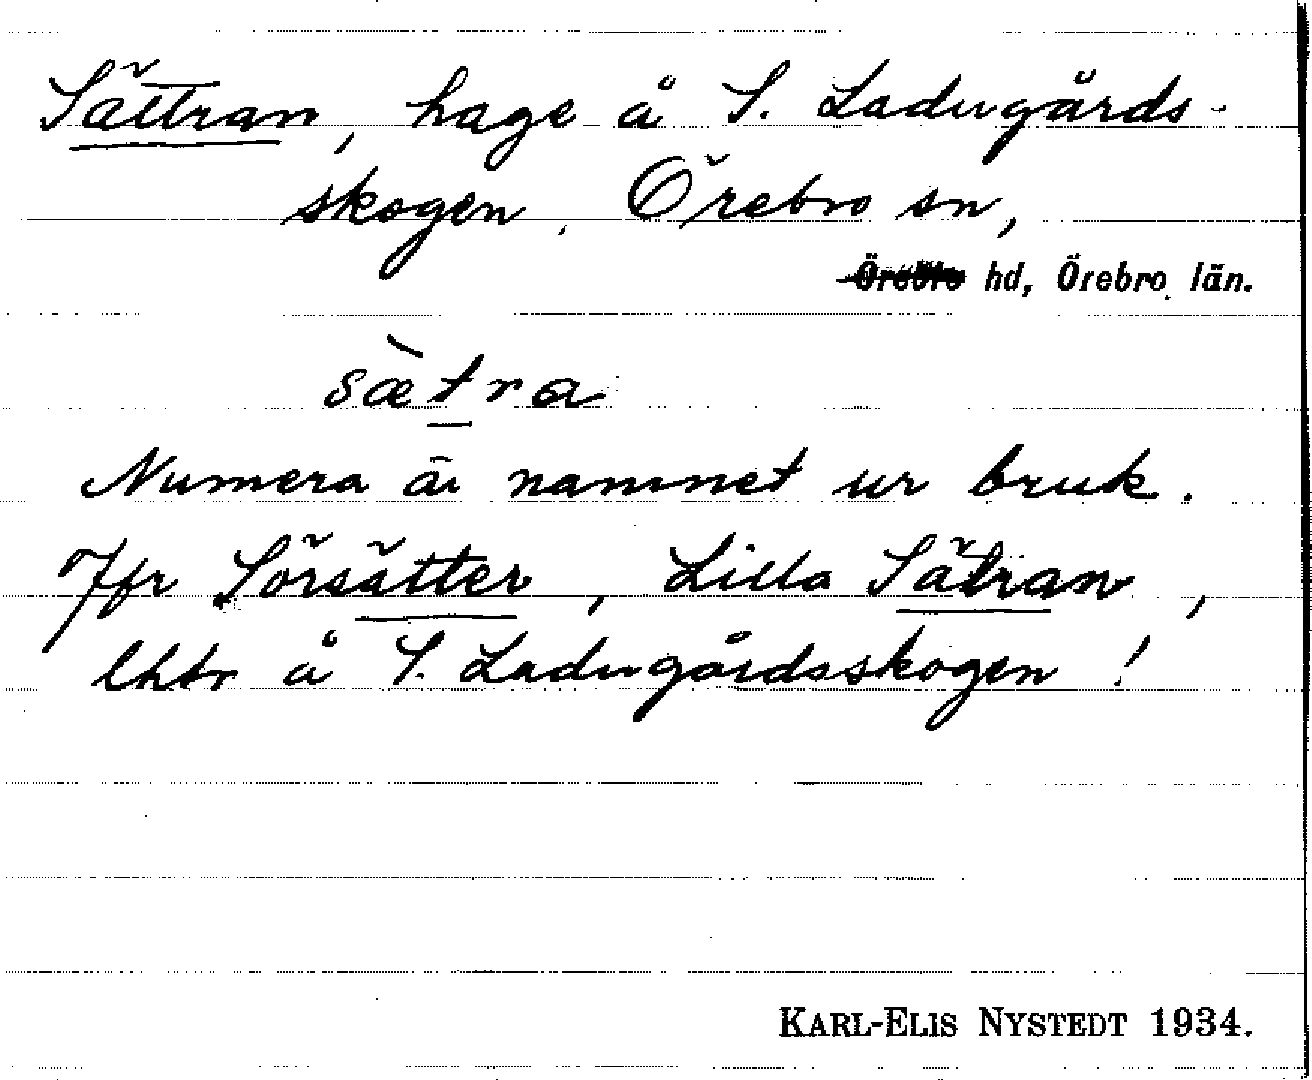 Sättran, hage å S. Ladugårds-
skogen. Örebro sn,
Örebro hd, Örebro län.
sætra
Numera är namnet ur bruk.
Jfr Sörsätter, Lilla Sätran,
lhtr å S. Ladugårdsskogen!
KARL-ELIS NYSTEDT 1934.